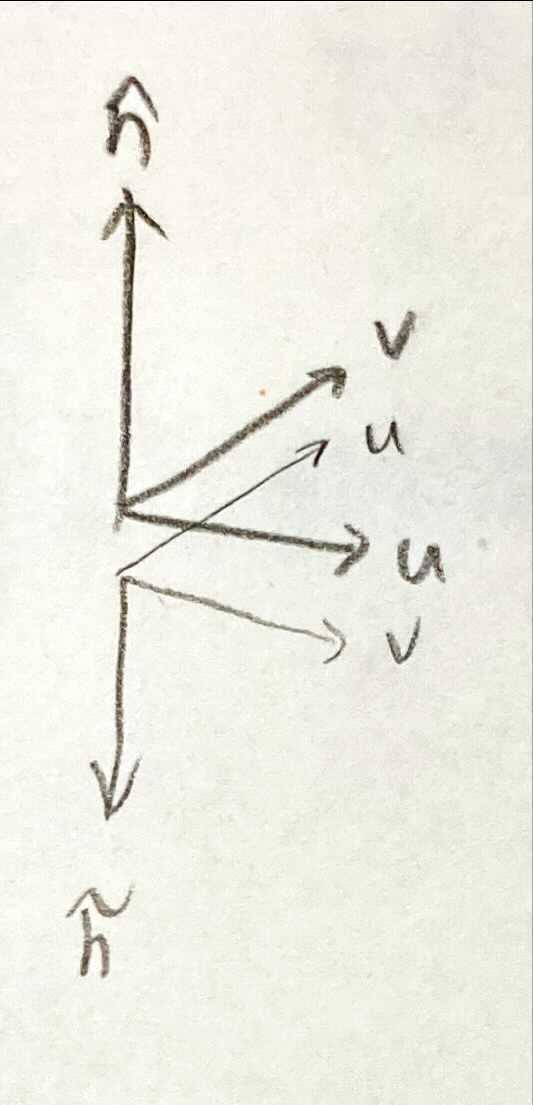 n̂
v
u
u
v
ñ